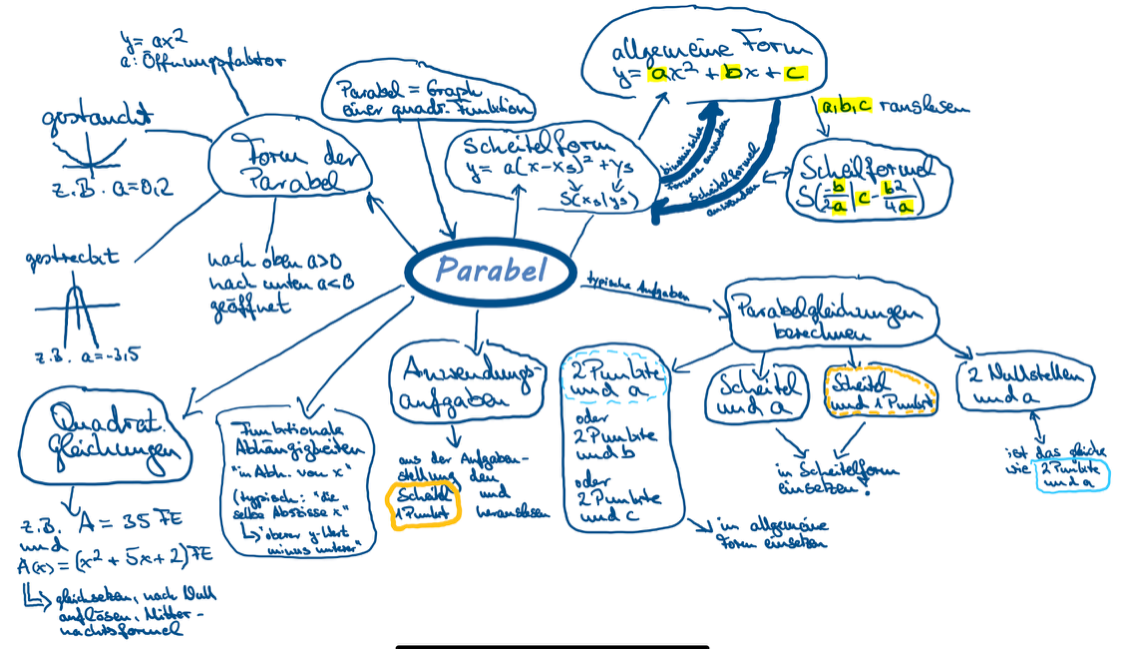 y = ax²
a: Öffnungsfaktor
gestaucht
z.B. a=0,2
Form der
Parabel
gestreckt
z.B. a=-3,5
nach oben a>0
nach unten a<0
geöffnet
Parabel = Graph
einer quadr. Funktion
Scheitelform
y = a(x-xs)² + ys
S(xs|ys)
allgemeine Form
y = ax² + bx + c
binomische
Formel anwenden
Scheitelformel
anwenden
a,b,c rauslesen
Scheitelformel
S(-b/2a | c - b²/4a)
Parabel
typische Aufgaben
Parabelgleichungen
berechnen
2 Punkte
und a
oder
2 Punkte
und b
oder
2 Punkte
und c
in allgemeine
Form einsetzen
Scheitel
und a
Scheitel
und 1 Punkt
in Scheitelform
einsetzen!
2 Nullstellen
und a
ist das gleiche
wie 2 Punkte
und a
Anwendungs-
aufgaben
aus der Aufgaben-
stellung den
Scheitel und
1 Punkt herauslesen
Funktionale
Abhängigkeiten
"in Abh. von x"
(typisch: "die
selbe Abszisse x"
↳ "oberer y-Wert
minus unterer"
Quadrat.
gleichungen
z.B. A = 35 FE
und
A(x) = (x² + 5x + 2) FE
↳ gleichsetzen, nach Null
auflösen, Mitter-
nachtsformel